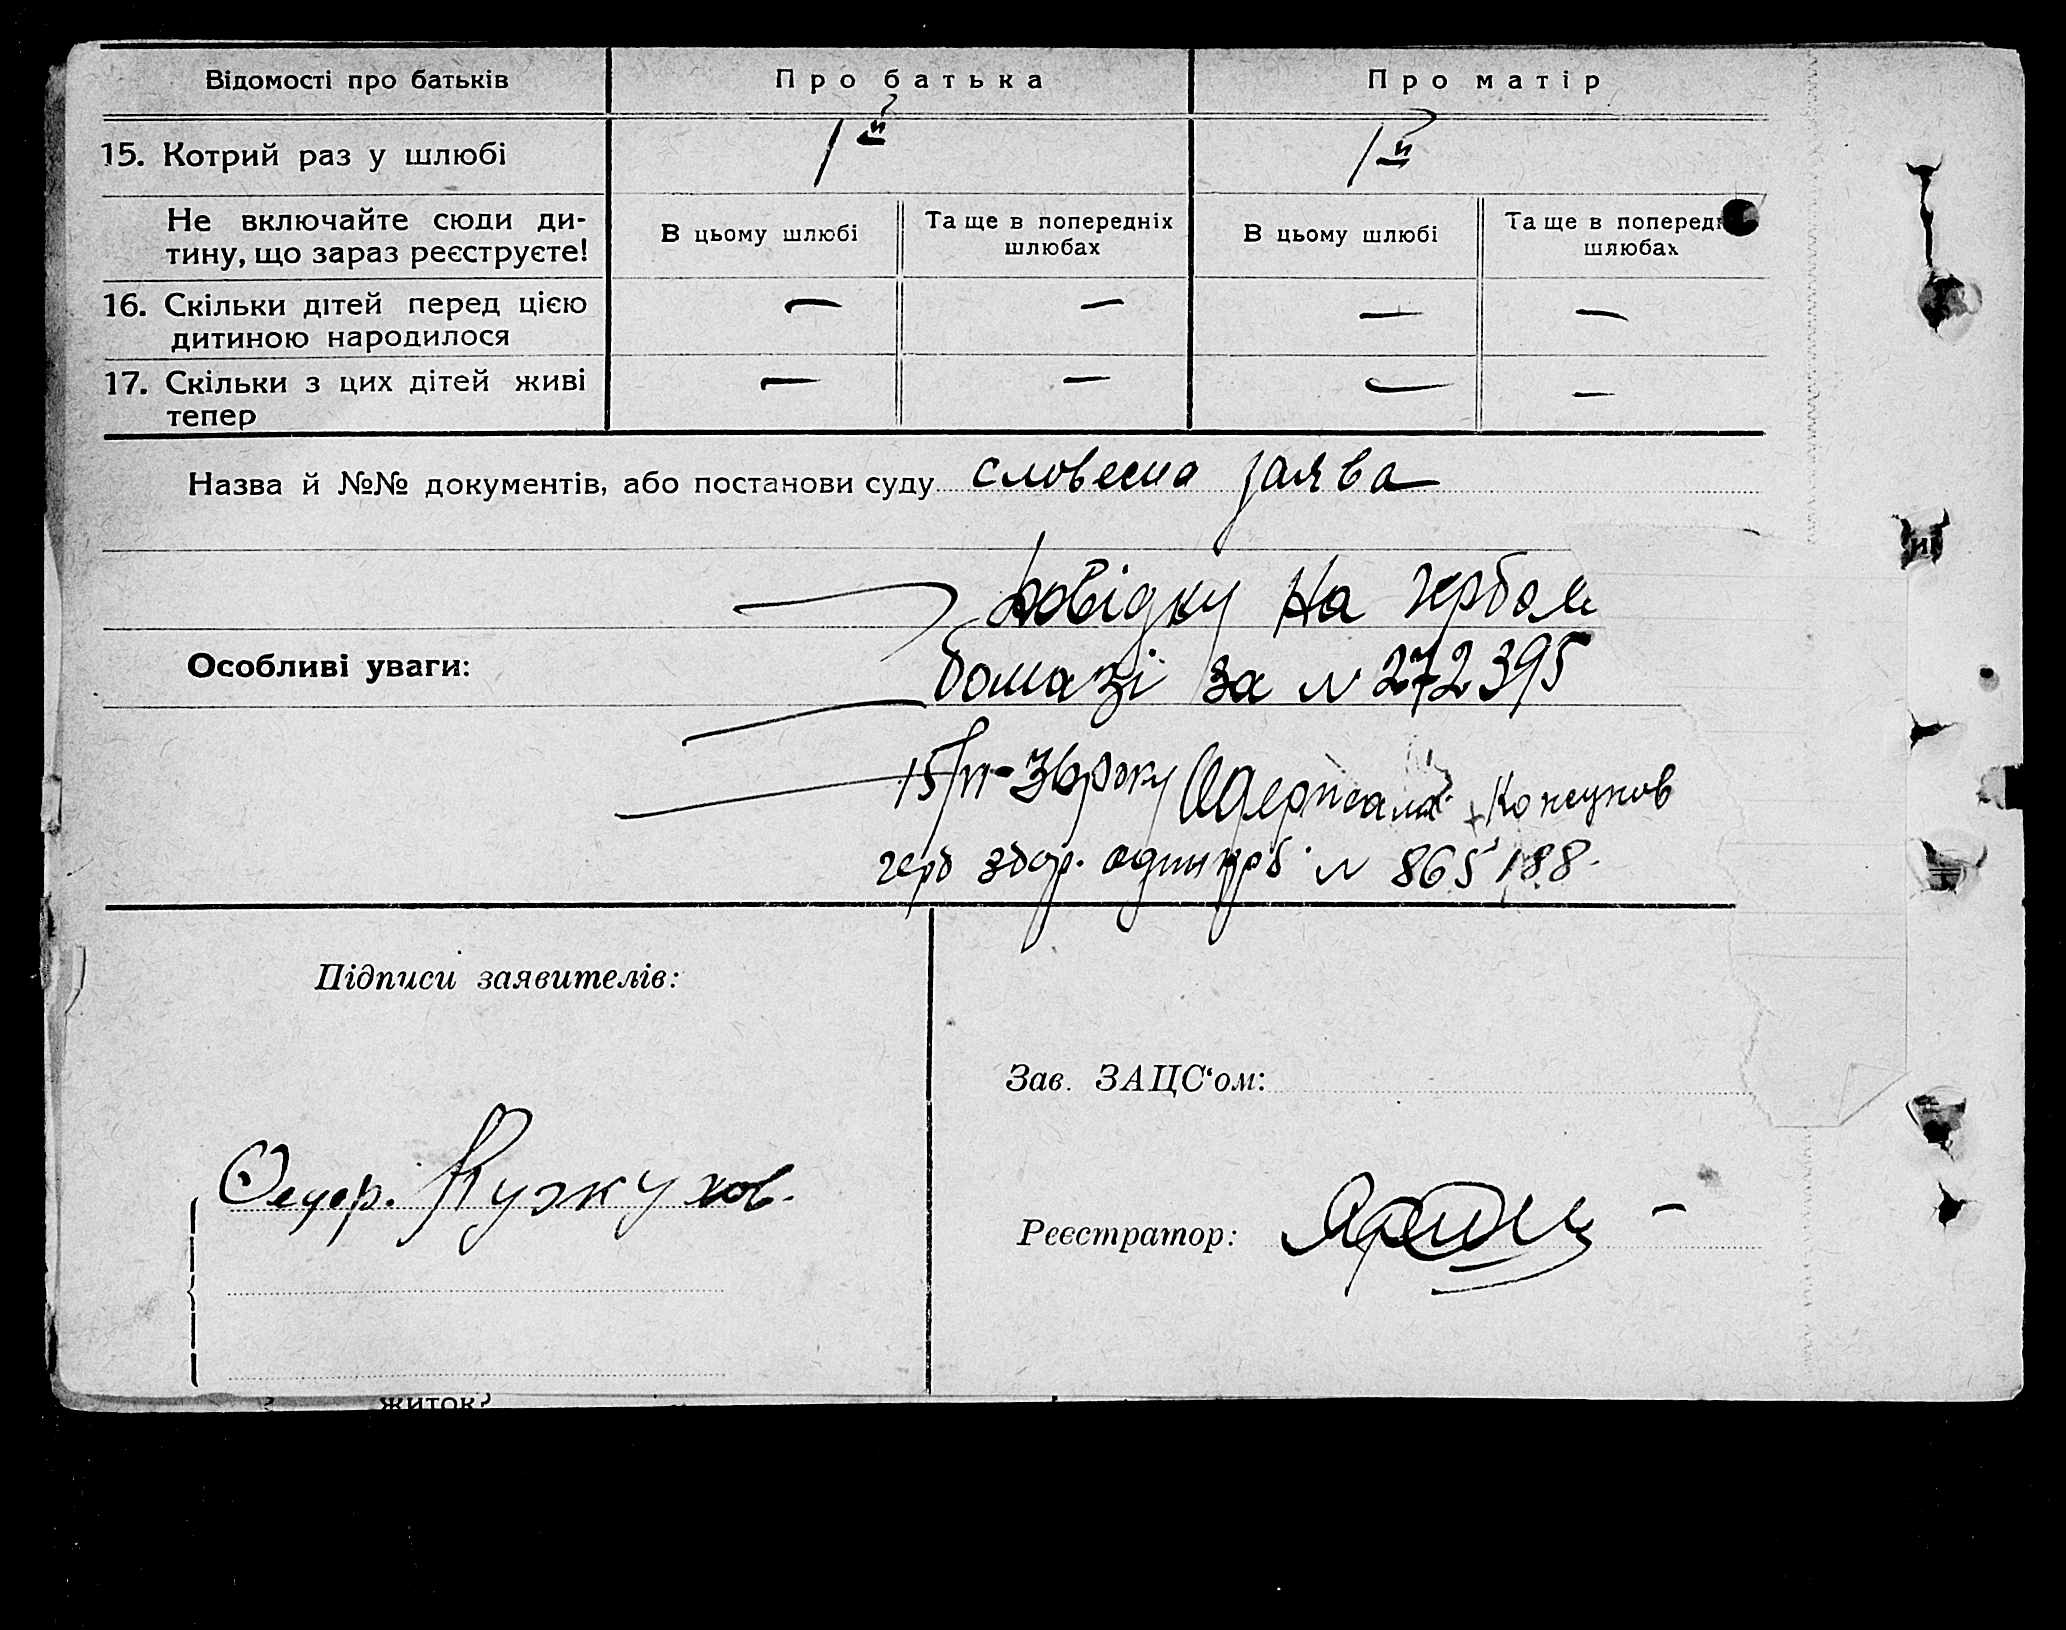 Відомості про батьків
Про батька
Про матір
15. Котрий раз у шлюбі
1й
1й
Не включайте сюди ди-
тину, що зараз реєструєте!
В цьому шлюбі
Та ще в попередніх
шлюбах
В цьому шлюбі
Та ще в поперед
шлюбах
16. Скільки дітей перед цією
дитиною народилося
— — — —
17. Скільки з цих дітей живі
тепер
— — — —
Назва й №№ документів, або постанови суду словесна заява
Довідку на гербов
Особливі уваги:
бомазі за N 272395
15/VI-36 року Одержала Кожухов
герб збор. один крб. N 865188.
Підписи заявителів:
Зав. ЗАЦС‘ом:
Федор. Кужухов.
Реєстратор:
житок?